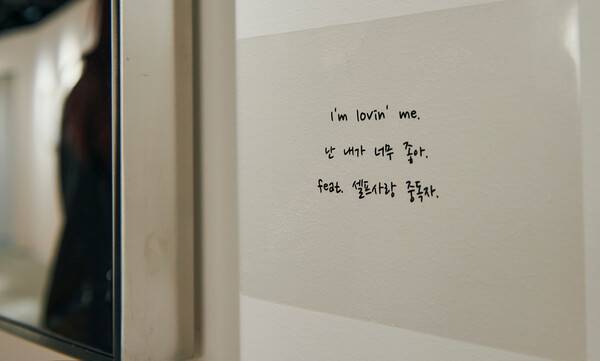 I'm lovin' me.
난 내가 너무 좋아.
feat. 셀프사랑 중독자.